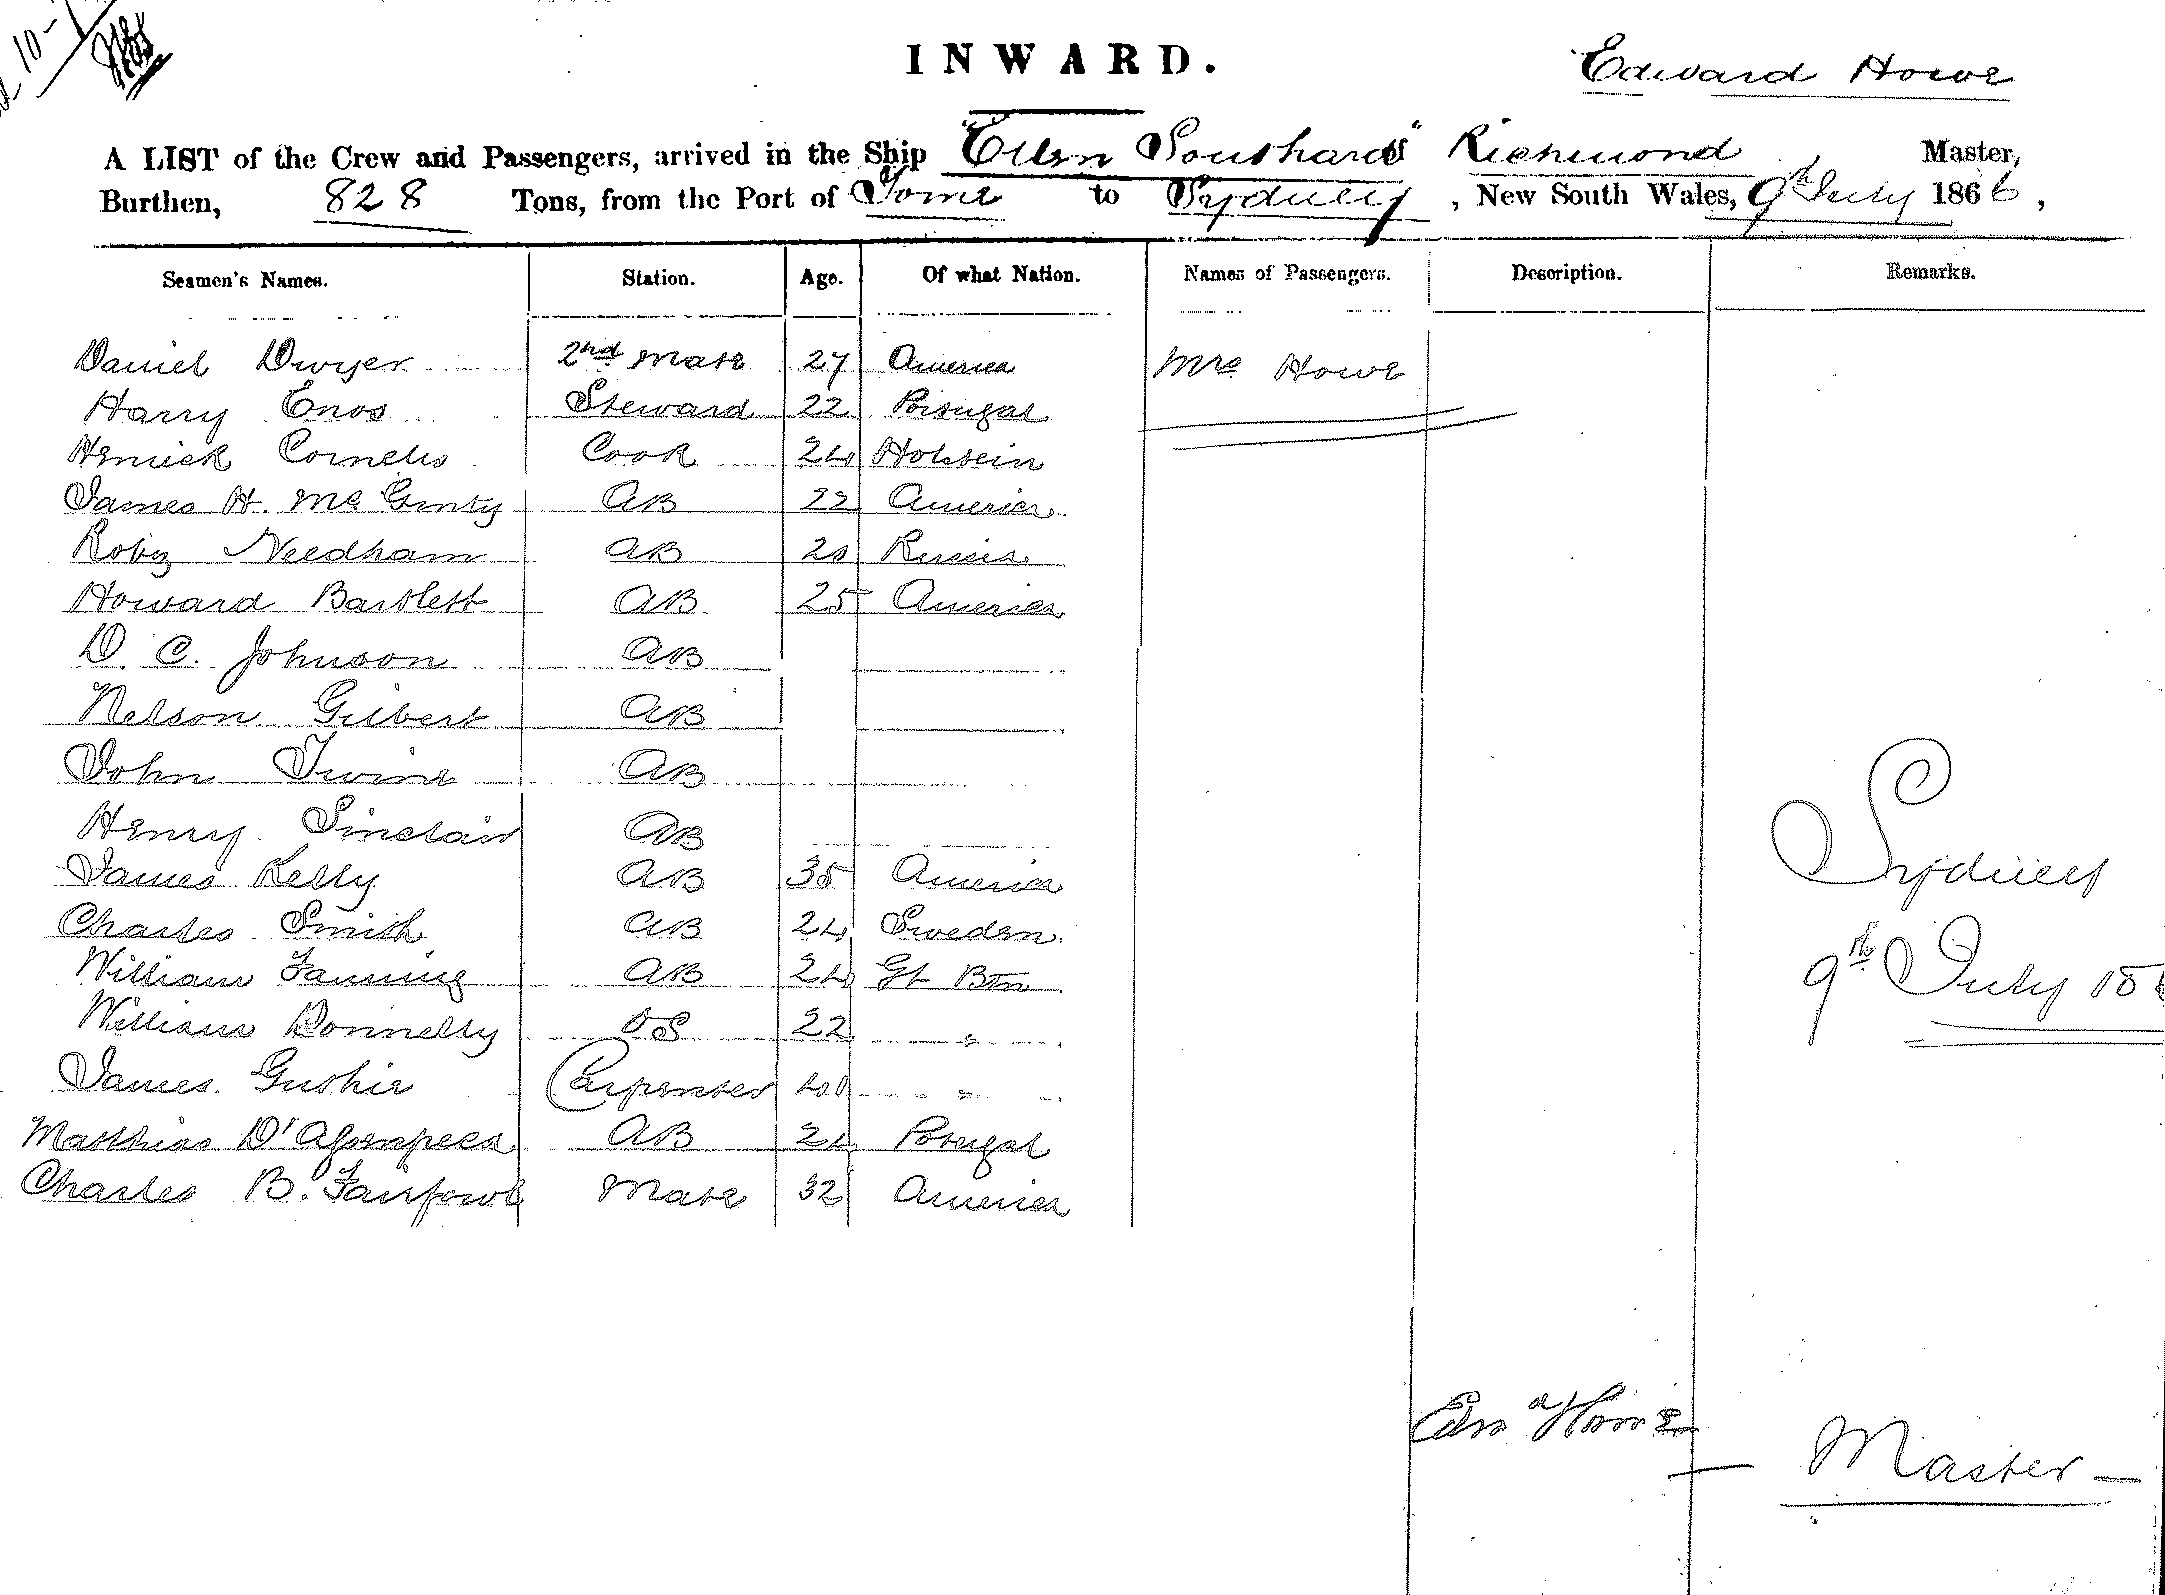 INWARD.
Edward Howe
A LIST of the Crew and Passengers, arrived in the Ship "Ellen Southard" Richmond Master,
Burthen, 828 Tons, from the Port of Tome to Sydney, New South Wales, 9th July 1866,
Seamen's Names. Station. Age. Of what Nation. Names of Passengers. Description. Remarks.
Daniel Dwyer 2nd Mate 27 America Mrs Howe
Harry Enos Steward 22 Portugal
Cornelis Cook 24 Holstein
James H. McGinty AB 22 America
Needham AB 20 Russia
Howard Bartlett AB 25 America
D. C. Johnson AB
Nelson Gilbert AB
John Irvine AB
Henry Sinclair AB
James Kelly AB 35 America
Charles Smith AB 24 Sweden
William Fanning AB 24 Gt Btn
William Donnelly OS 22 "
James Guthie Carpenter 40 "
Matthias AB 24 Portugal
Charles B. Fairfowl Mate 32 America
Sydney
9th July
Edwd Howe
— Master —